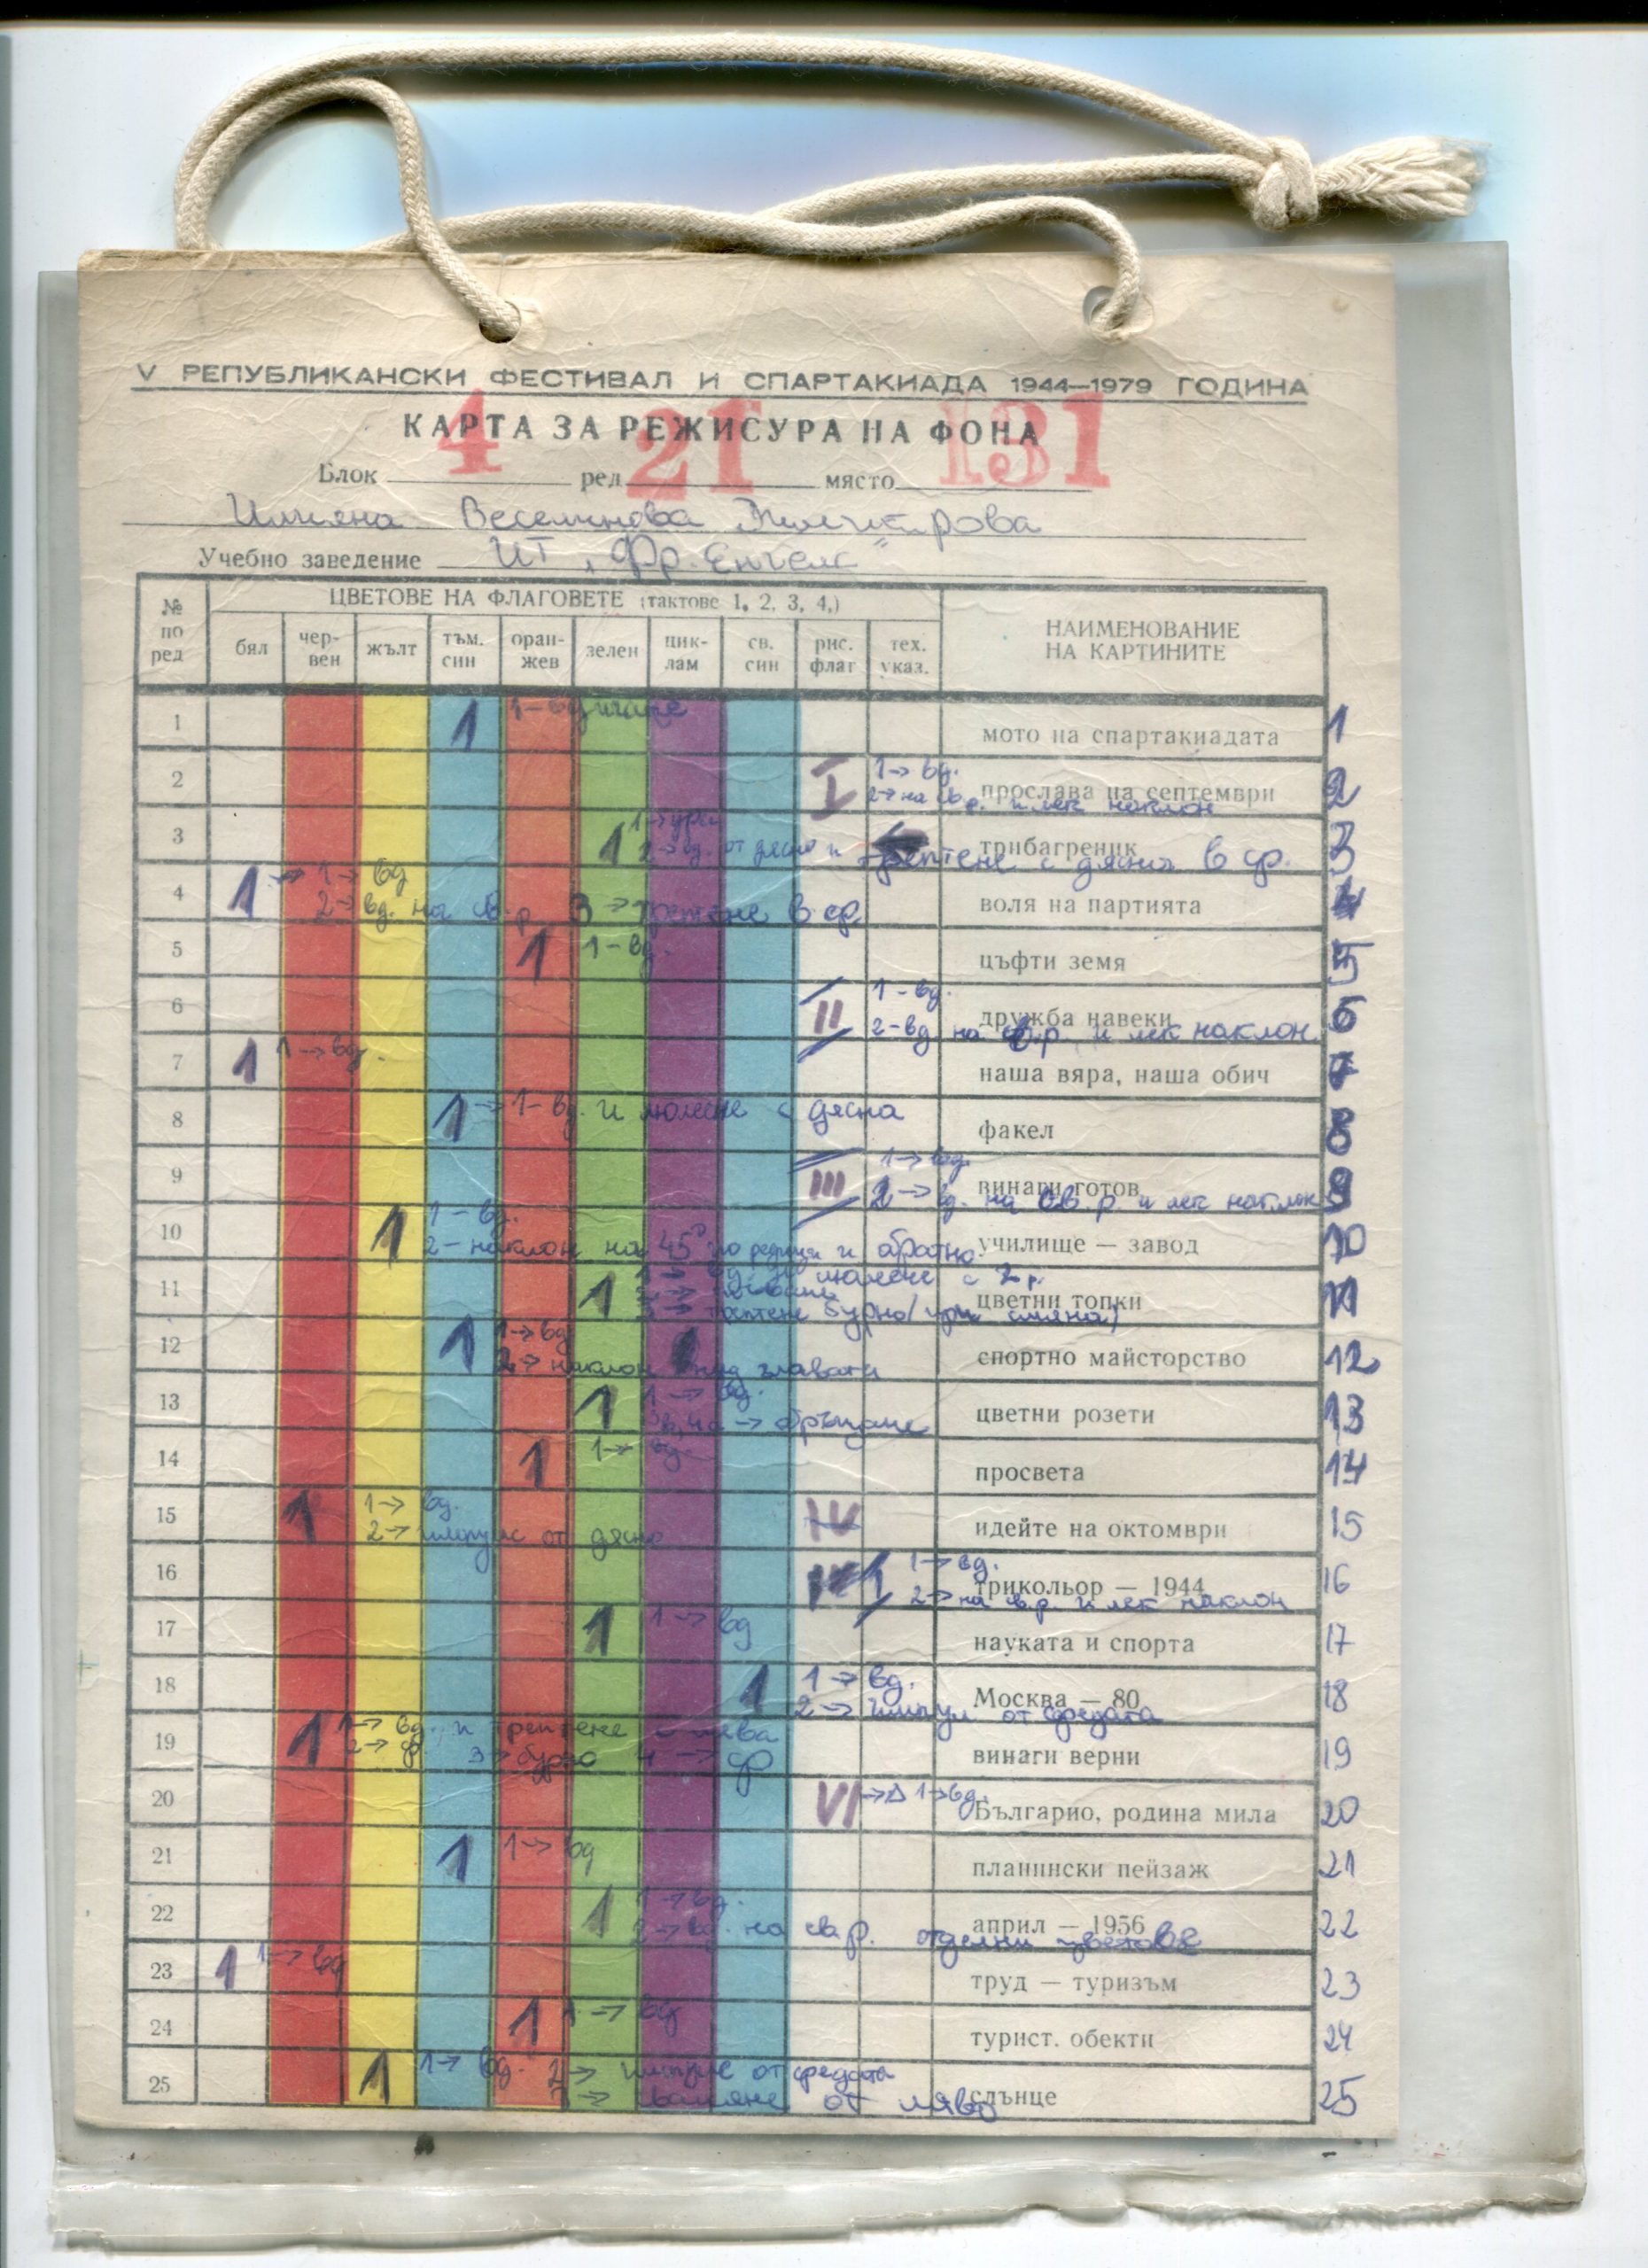 V РЕПУБЛИКАНСКИ ФЕСТИВАЛ И СПАРТАКИАДА 1944—1979 ГОДИНА
КАРТА ЗА РЕЖИСУРА НА ФОНА
Блок 4 ред 21 място 131
Илияна Веселинова Димитрова
Учебно заведение ИТ „Фр. Енгелс"
№ по ред
ЦВЕТОВЕ НА ФЛАГОВЕТЕ (тактове 1, 2, 3, 4,)
НАИМЕНОВАНИЕ НА КАРТИНИТЕ
бял чер-вен жълт тъм. син оран-жев зелен цик-лам св. син рис. флаг тех. указ.
1 1 1- вдигане мото на спартакиадата 1
2 I 1→ вд. прослава на септември 2
2→ на св. р. и лек наклон
3 1 трибагреник 3
трептене с дясна в ср.
4 1 → 1→ вд воля на партията 4
2→ вд. на св. р. 3→ трептене в ср.
5 1 1- вд. цъфти земя 5
6 II 1- вд. дружба навеки 6
2- вд. на св. р. и лек наклон
7 1 1→ вд. наша вяра, наша обич 7
8 1 → 1- вд. и люлеене с дясна факел 8
9 III 1→ вд. винаги готов 9
2→ вд. на св. р. и лек наклон
10 1 1- вд. училище — завод 10
2- наклон на 45° по редици и обратно
11 1 цветни топки 11
12 1 1→ вд спортно майсторство 12
2→ наклон над главата
13 1 1→ вд. цветни розети 13
→ обръщане
14 1 1→ вд. просвета 14
15 1 1→ вд. IV идейте на октомври 15
2→ импулс от дясно
16 1→ вд. трикольор — 1944 16
2→ на св. р. и лек наклон
17 1 1→ вд науката и спорта 17
18 1 1→ вд. Москва — 80 18
2→ импул. от средата
19 1 1→ вд. и трептене с лева винаги верни 19
2→ ср. 3→ бурно 4→ ср
20 VI →Δ 1→ вд. Българио, родина мила 20
21 1 1→ вд планински пейзаж 21
22 1 1→ вд. април — 1956 22
2→ вд. на св. р. отделни цветове
23 1 1→ вд труд — туризъм 23
24 1 1→ вд турист. обекти 24
25 1 1→ вд. 2→ импулс от средата слънце 25
от ляво